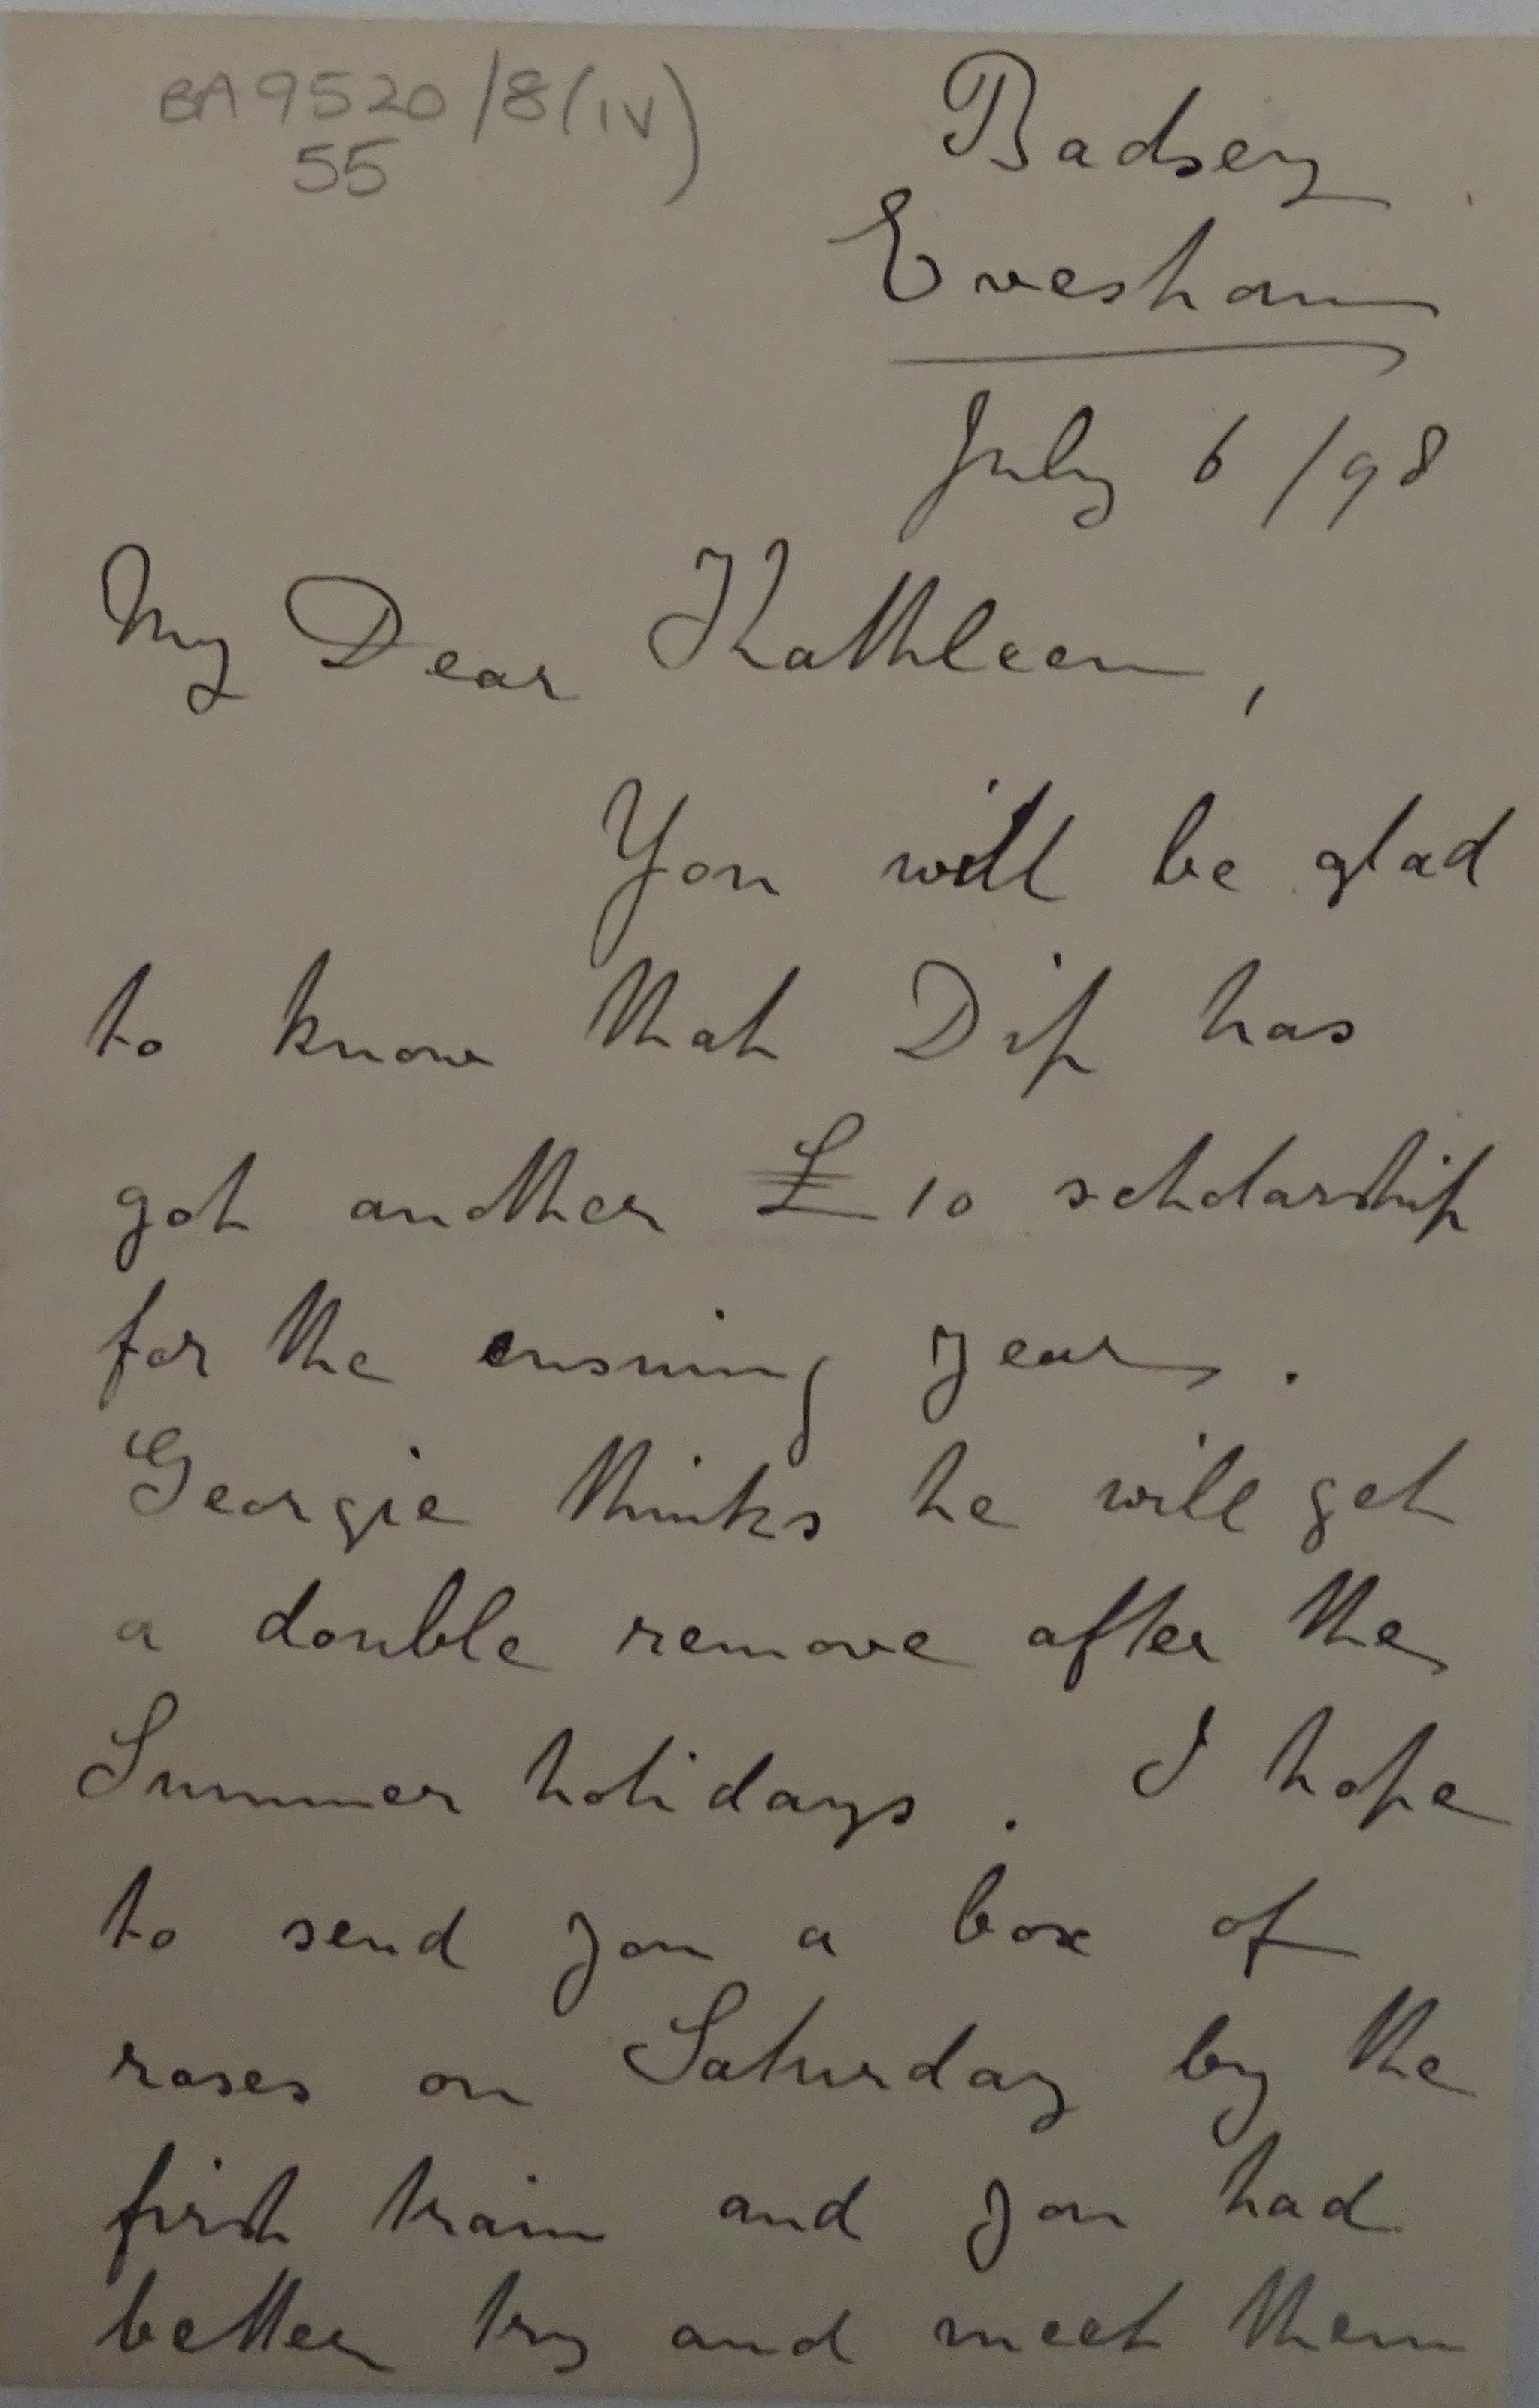 BA 9520/8(iv)
55
Badsey
Evesham
July 6/98
My Dear Kathleen,
You will be glad
to know that Dip has
got another £10 scholarship
for the ensuing year.
Georgie thinks he will get
a double remove after the
Summer holidays. I hope
to send you a box of
roses on Saturday by the
first train and you had
better try and meet them